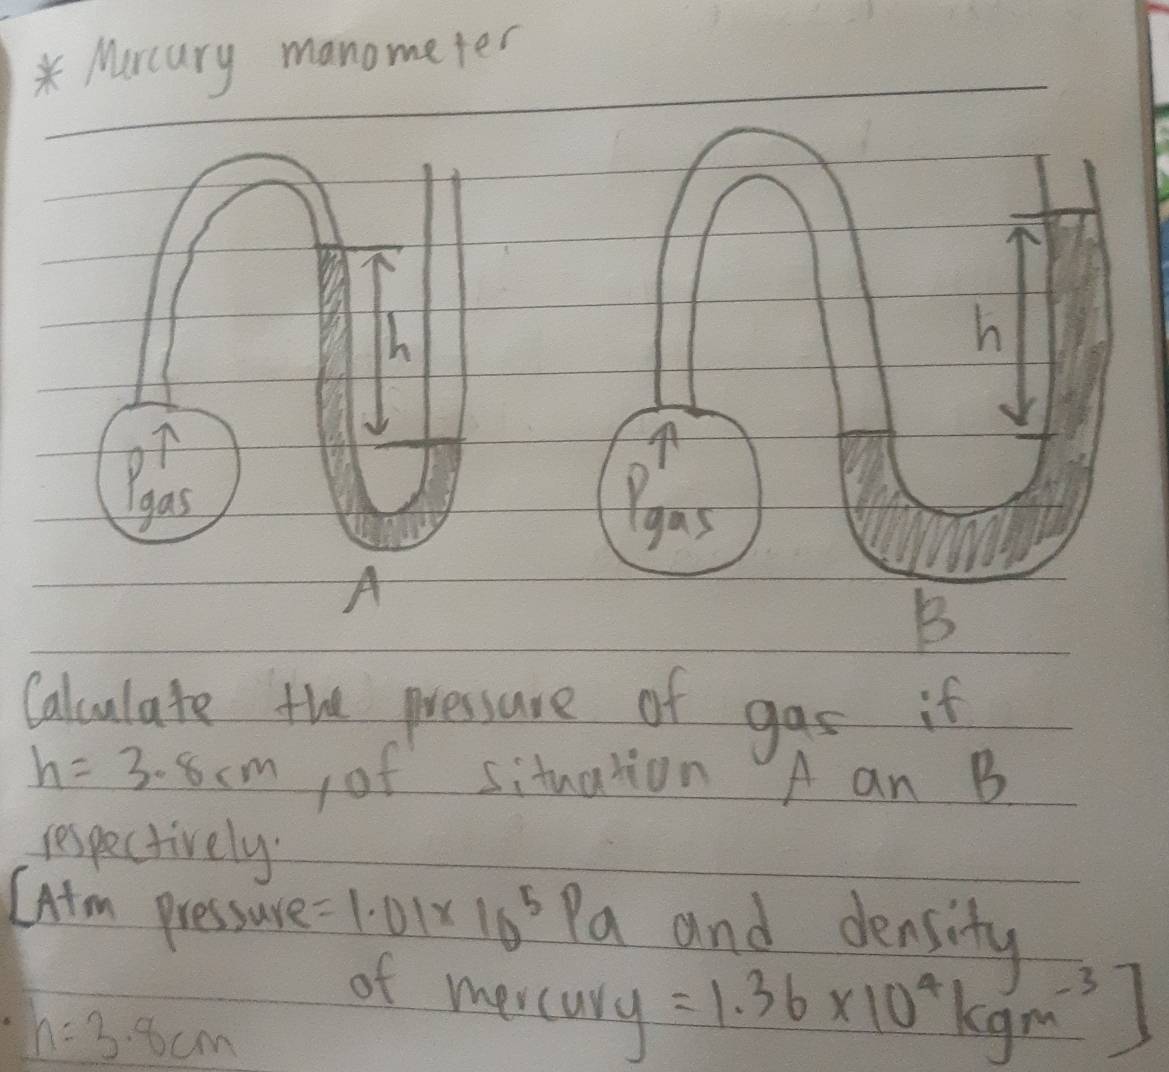 * Mercury manometer
h
h
Pgas
Pgas
A
B
Calculate the pressure of gas if
h = 3.8cm, of situation A an B
respectively.
[Atm pressure = 1.01 x 10⁵ Pa and density
of mercury = 1.36 x 10⁴ kgm⁻³]
h = 3.8cm